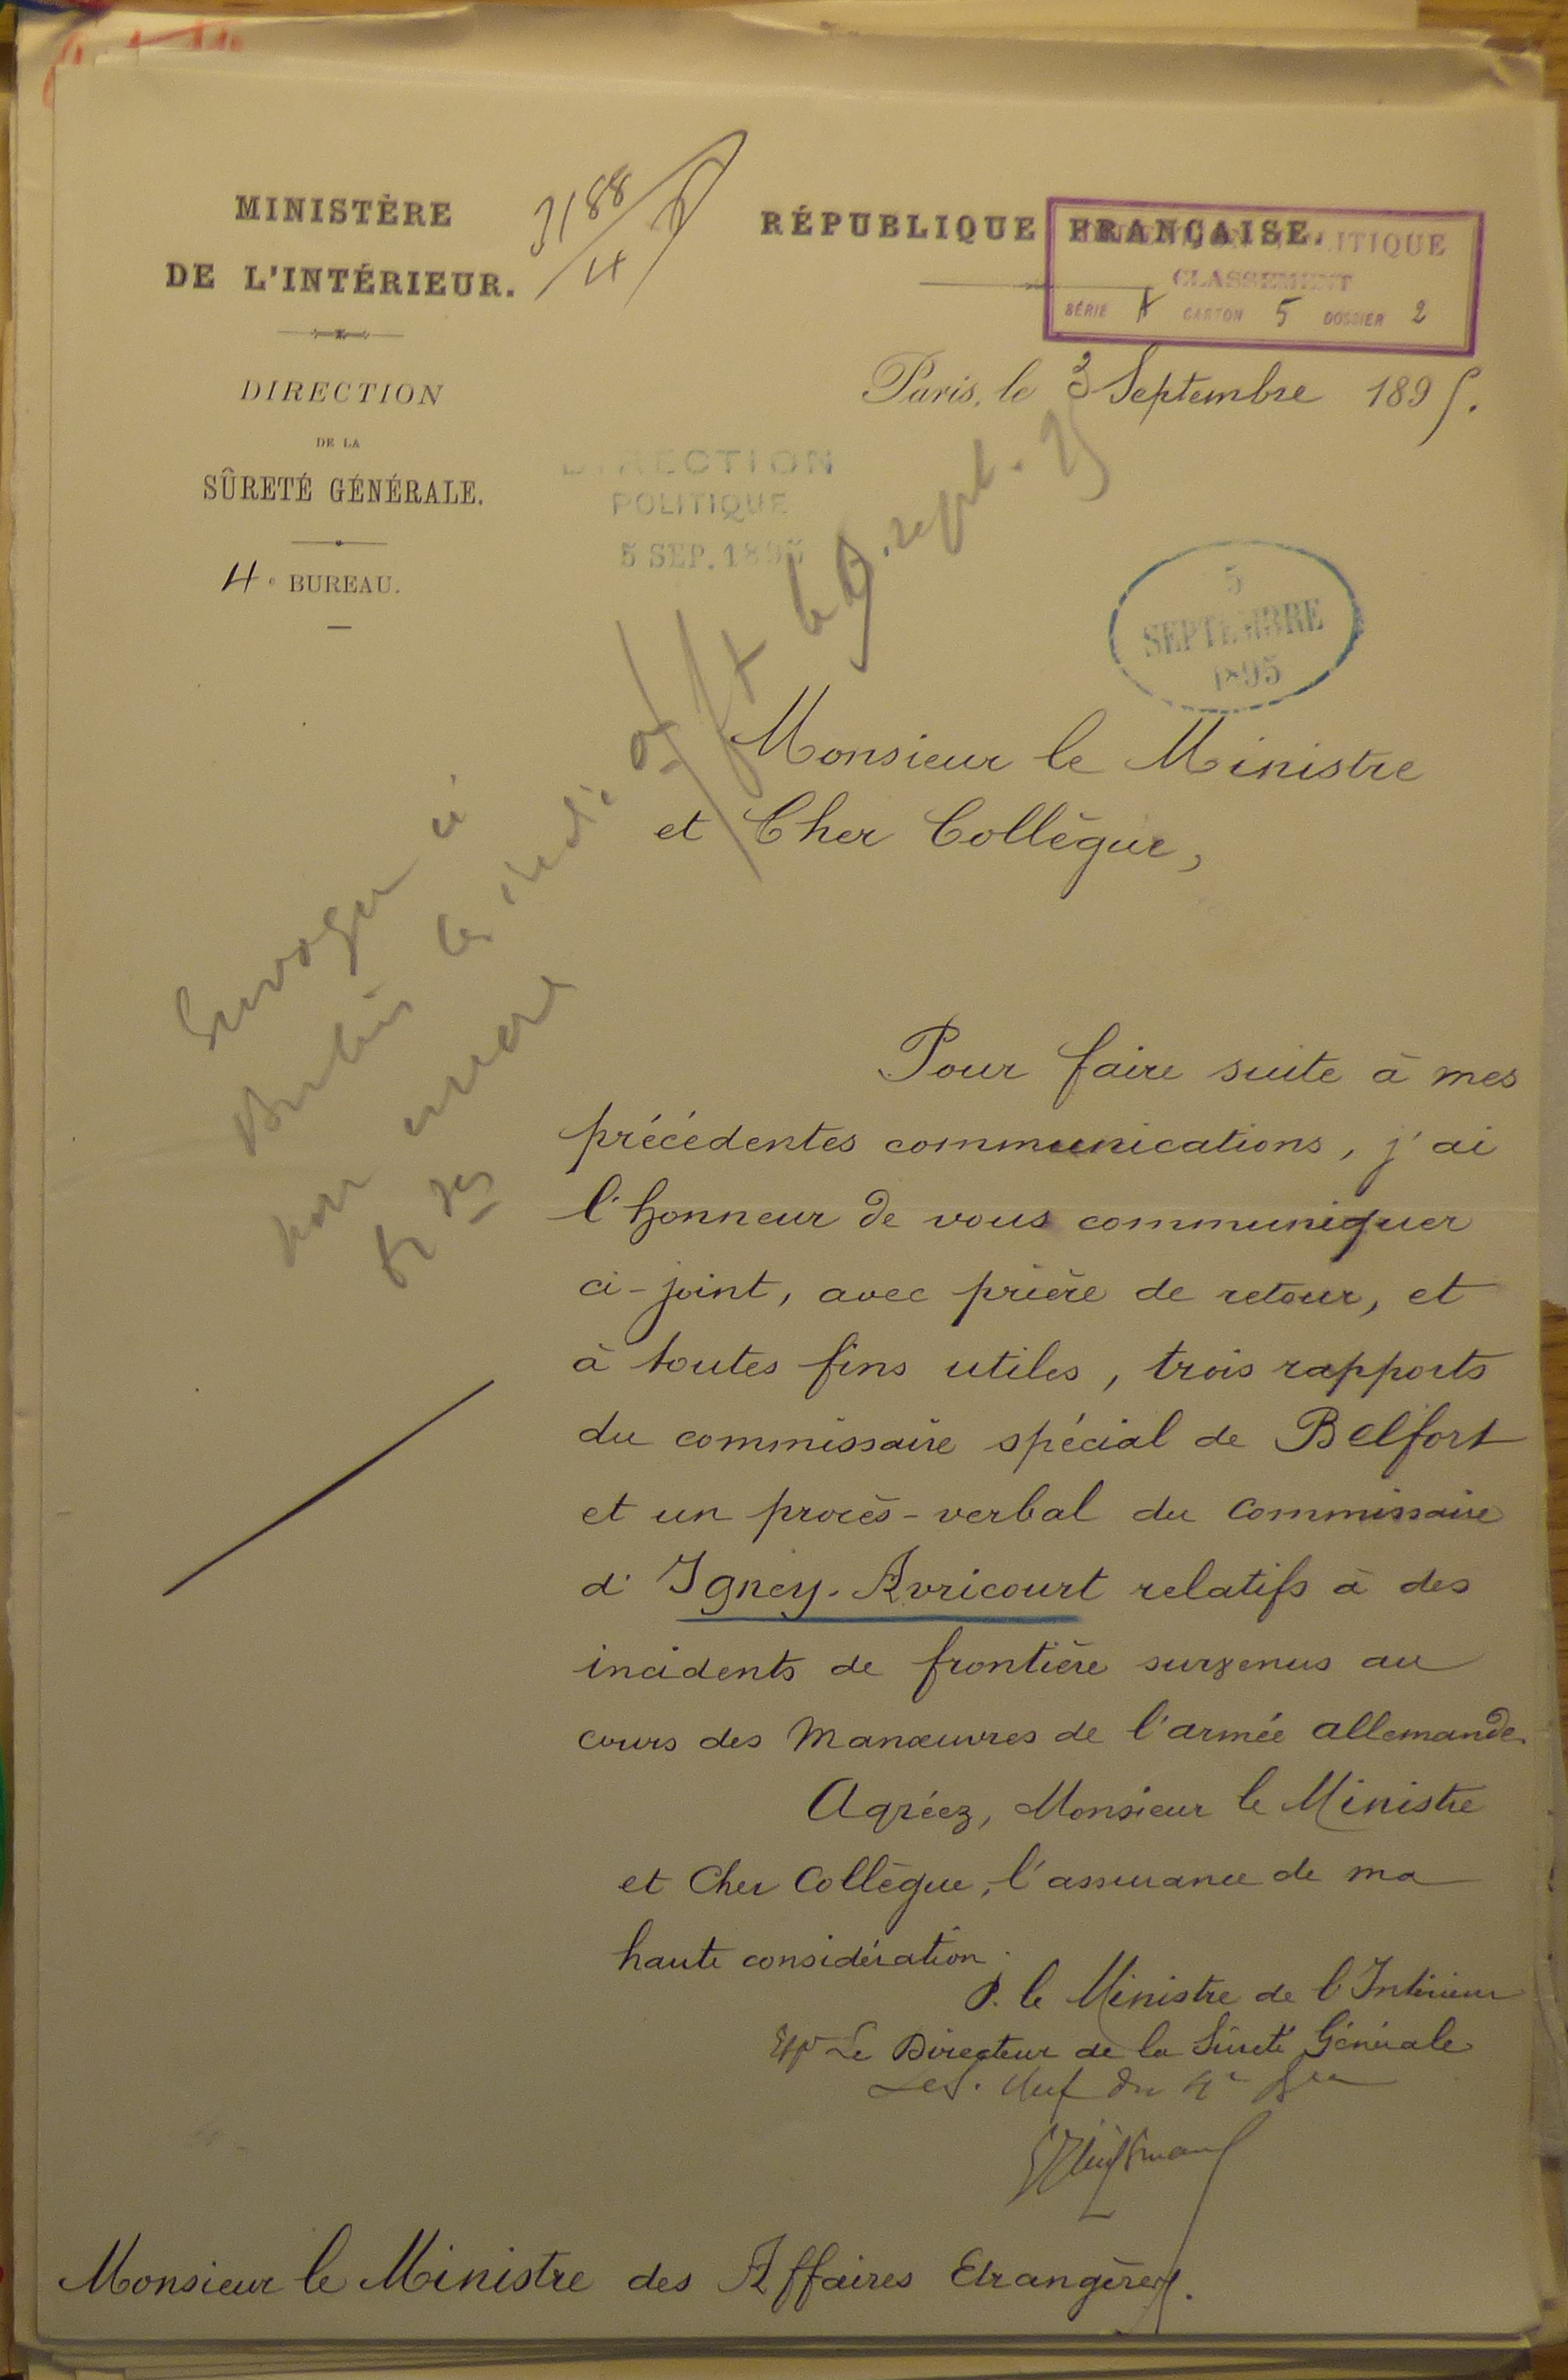 MINISTÈRE
DE L'INTÉRIEUR.
DIRECTION
DE LA
SÛRETÉ GÉNÉRALE.
4e BUREAU.
3188
4
RÉPUBLIQUE FRANÇAISE.
POLITIQUE
CLASSEMENT
SÉRIE A CARTON 5 DOSSIER 2
Paris, le 3 Septembre 1895.
DIRECTION
POLITIQUE
5 SEP. 1895
5
SEPTEMBRE
1895
le 9. sept. 95
Envoyer à
Monsieur le Ministre
et Cher Collègue,
Pour faire suite à mes
précédentes communications, j'ai
l'honneur de vous communiquer
ci-joint, avec prière de retour, et
à toutes fins utiles, trois rapports
du commissaire spécial de Belfort
et un procès-verbal du Commissaire
d'Igney-Avricourt relatifs à des
incidents de frontière survenus au
cours des Manœuvres de l'armée allemande.
Agréez, Monsieur le Ministre
et Cher Collègue, l'assurance de ma
haute considération.
P. le Ministre de l'Intérieur
Le Directeur de la Sûreté Générale
chef du 4e Bau
Monsieur le Ministre des Affaires Etrangères.